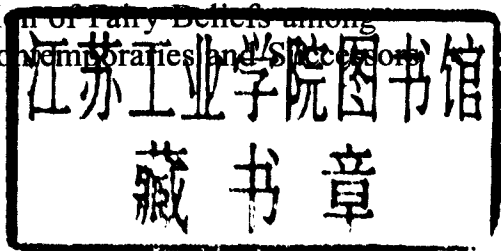 n of Fairy Beliefs among
ontemporaries and Successors
江苏工业学院图书馆
藏书章